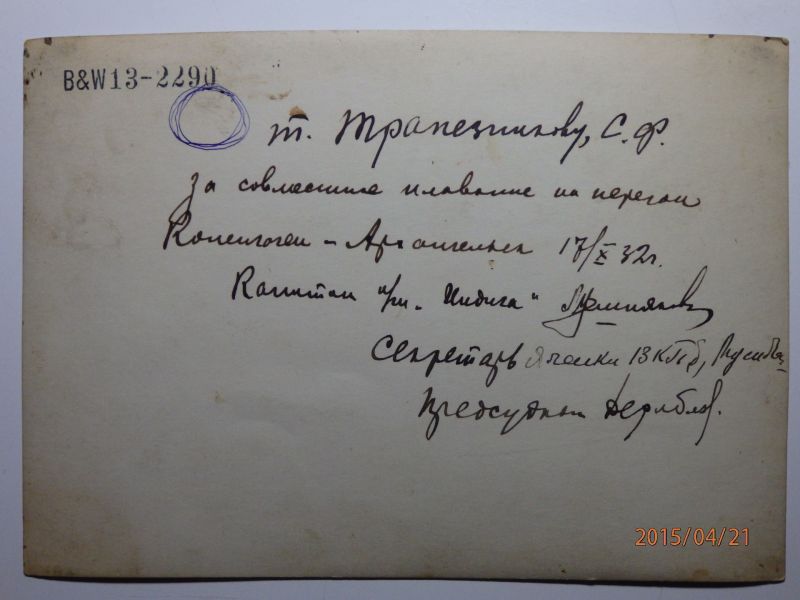 B&W13-2290
т. Трапезникову, С. Ф.
за совместное плавание на перегон
Копенгоген - Архангельск 17/X 32г.
Капитан п/х "Индига"
Секретарь Ячейки ВКПб,
Предсудком
2015/04/21